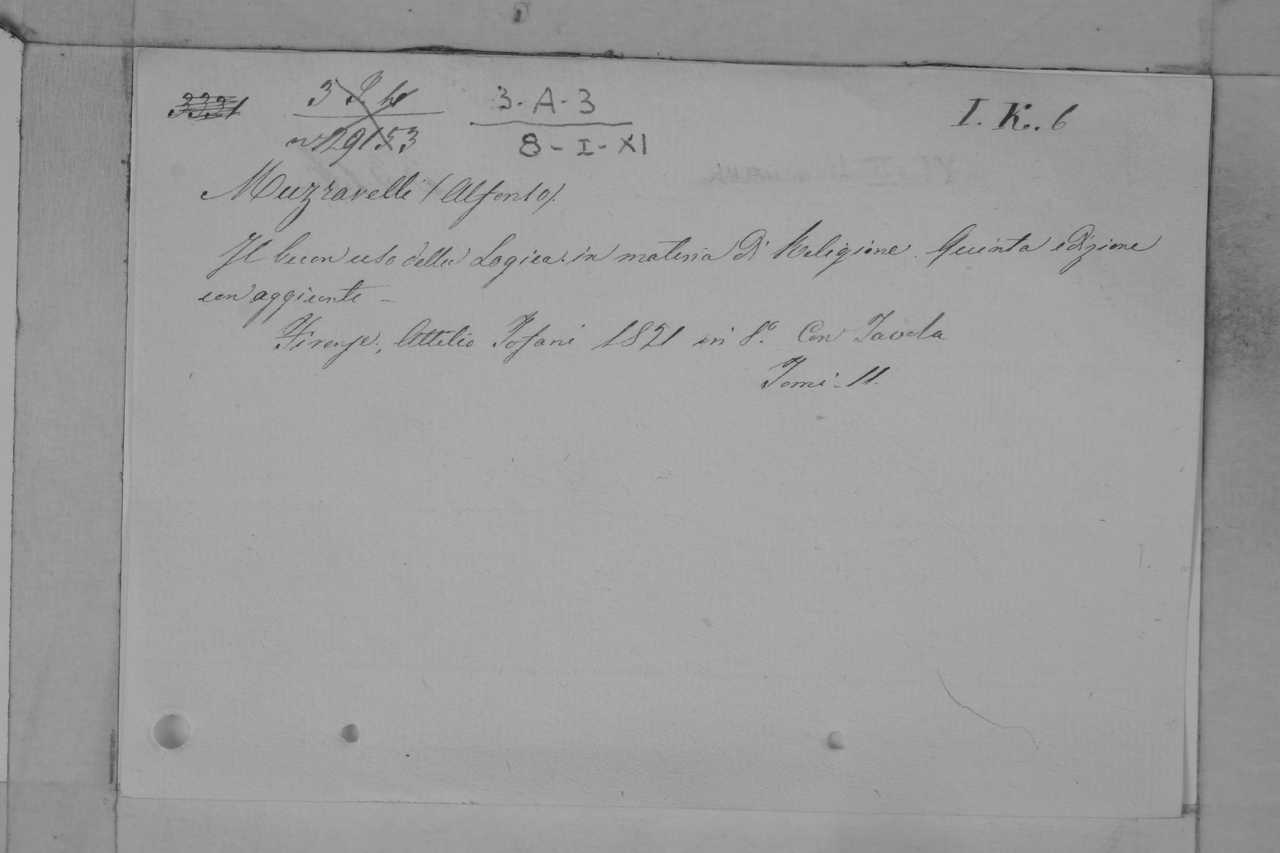 3331
3-A-3
8-I-XI
I. K. 6
Muzzarelli (Alfonso).
Il buon uso della Logica in materia di Religione. Quinta edizione
con aggiunte –
Firenze, Attilio Tofani 1821 in 8.º Con Tavola
Tomi 11.